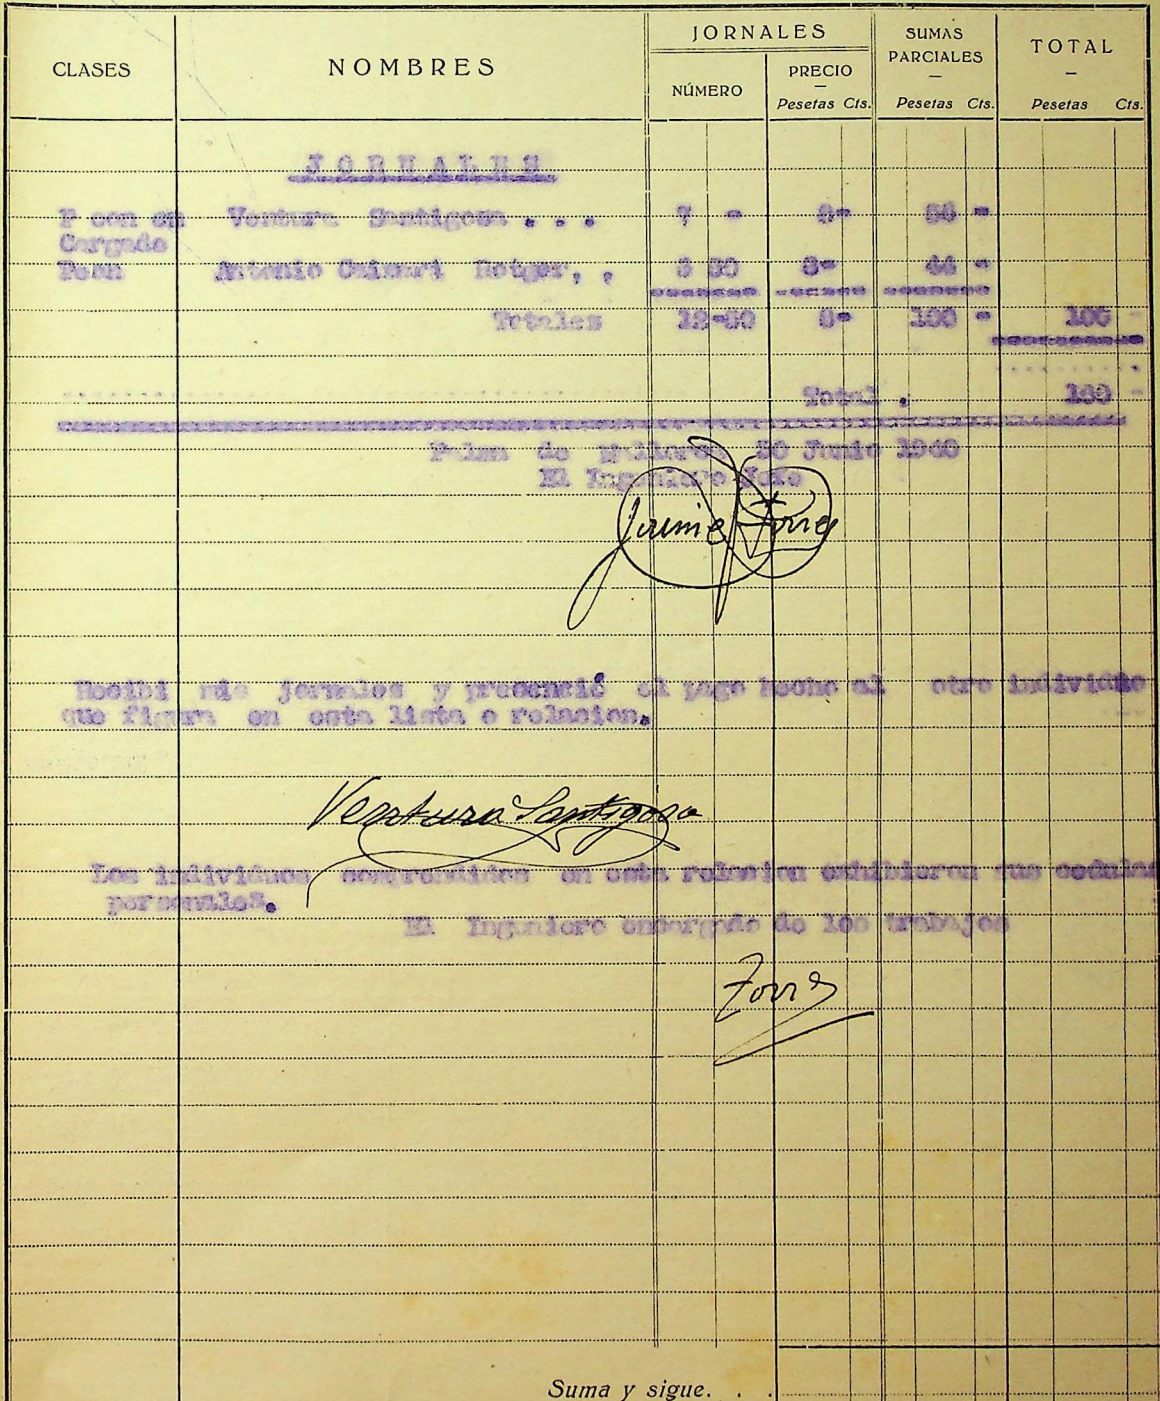 CLASES NOMBRES JORNALES NÚMERO PRECIO Pesetas Cts. SUMAS PARCIALES Pesetas Cts. TOTAL Pesetas Cts.
JORNALES
P eon en Ventura Santigosa . . . 7 - 8- 56 -
Cargado
Peon Antonio Caimari Rotger, . 5 50 8- 44 -
Totales 12-50 8- 100 - 100 -
Total . 100 -
Palma de Mallorca 30 Junio 1940
El Ingeniero Jefe
Jaime Torres
Recibi mis jornales y presencié el pago hecho al otro individuo
que figura en esta lista o relacion.
Ventura Santigosa
Los individuos comprendidos en esta relacion exhibieron sus cedulas
personales.
El Ingeniero encargado de los trabajos
Torres
Suma y sigue. . .